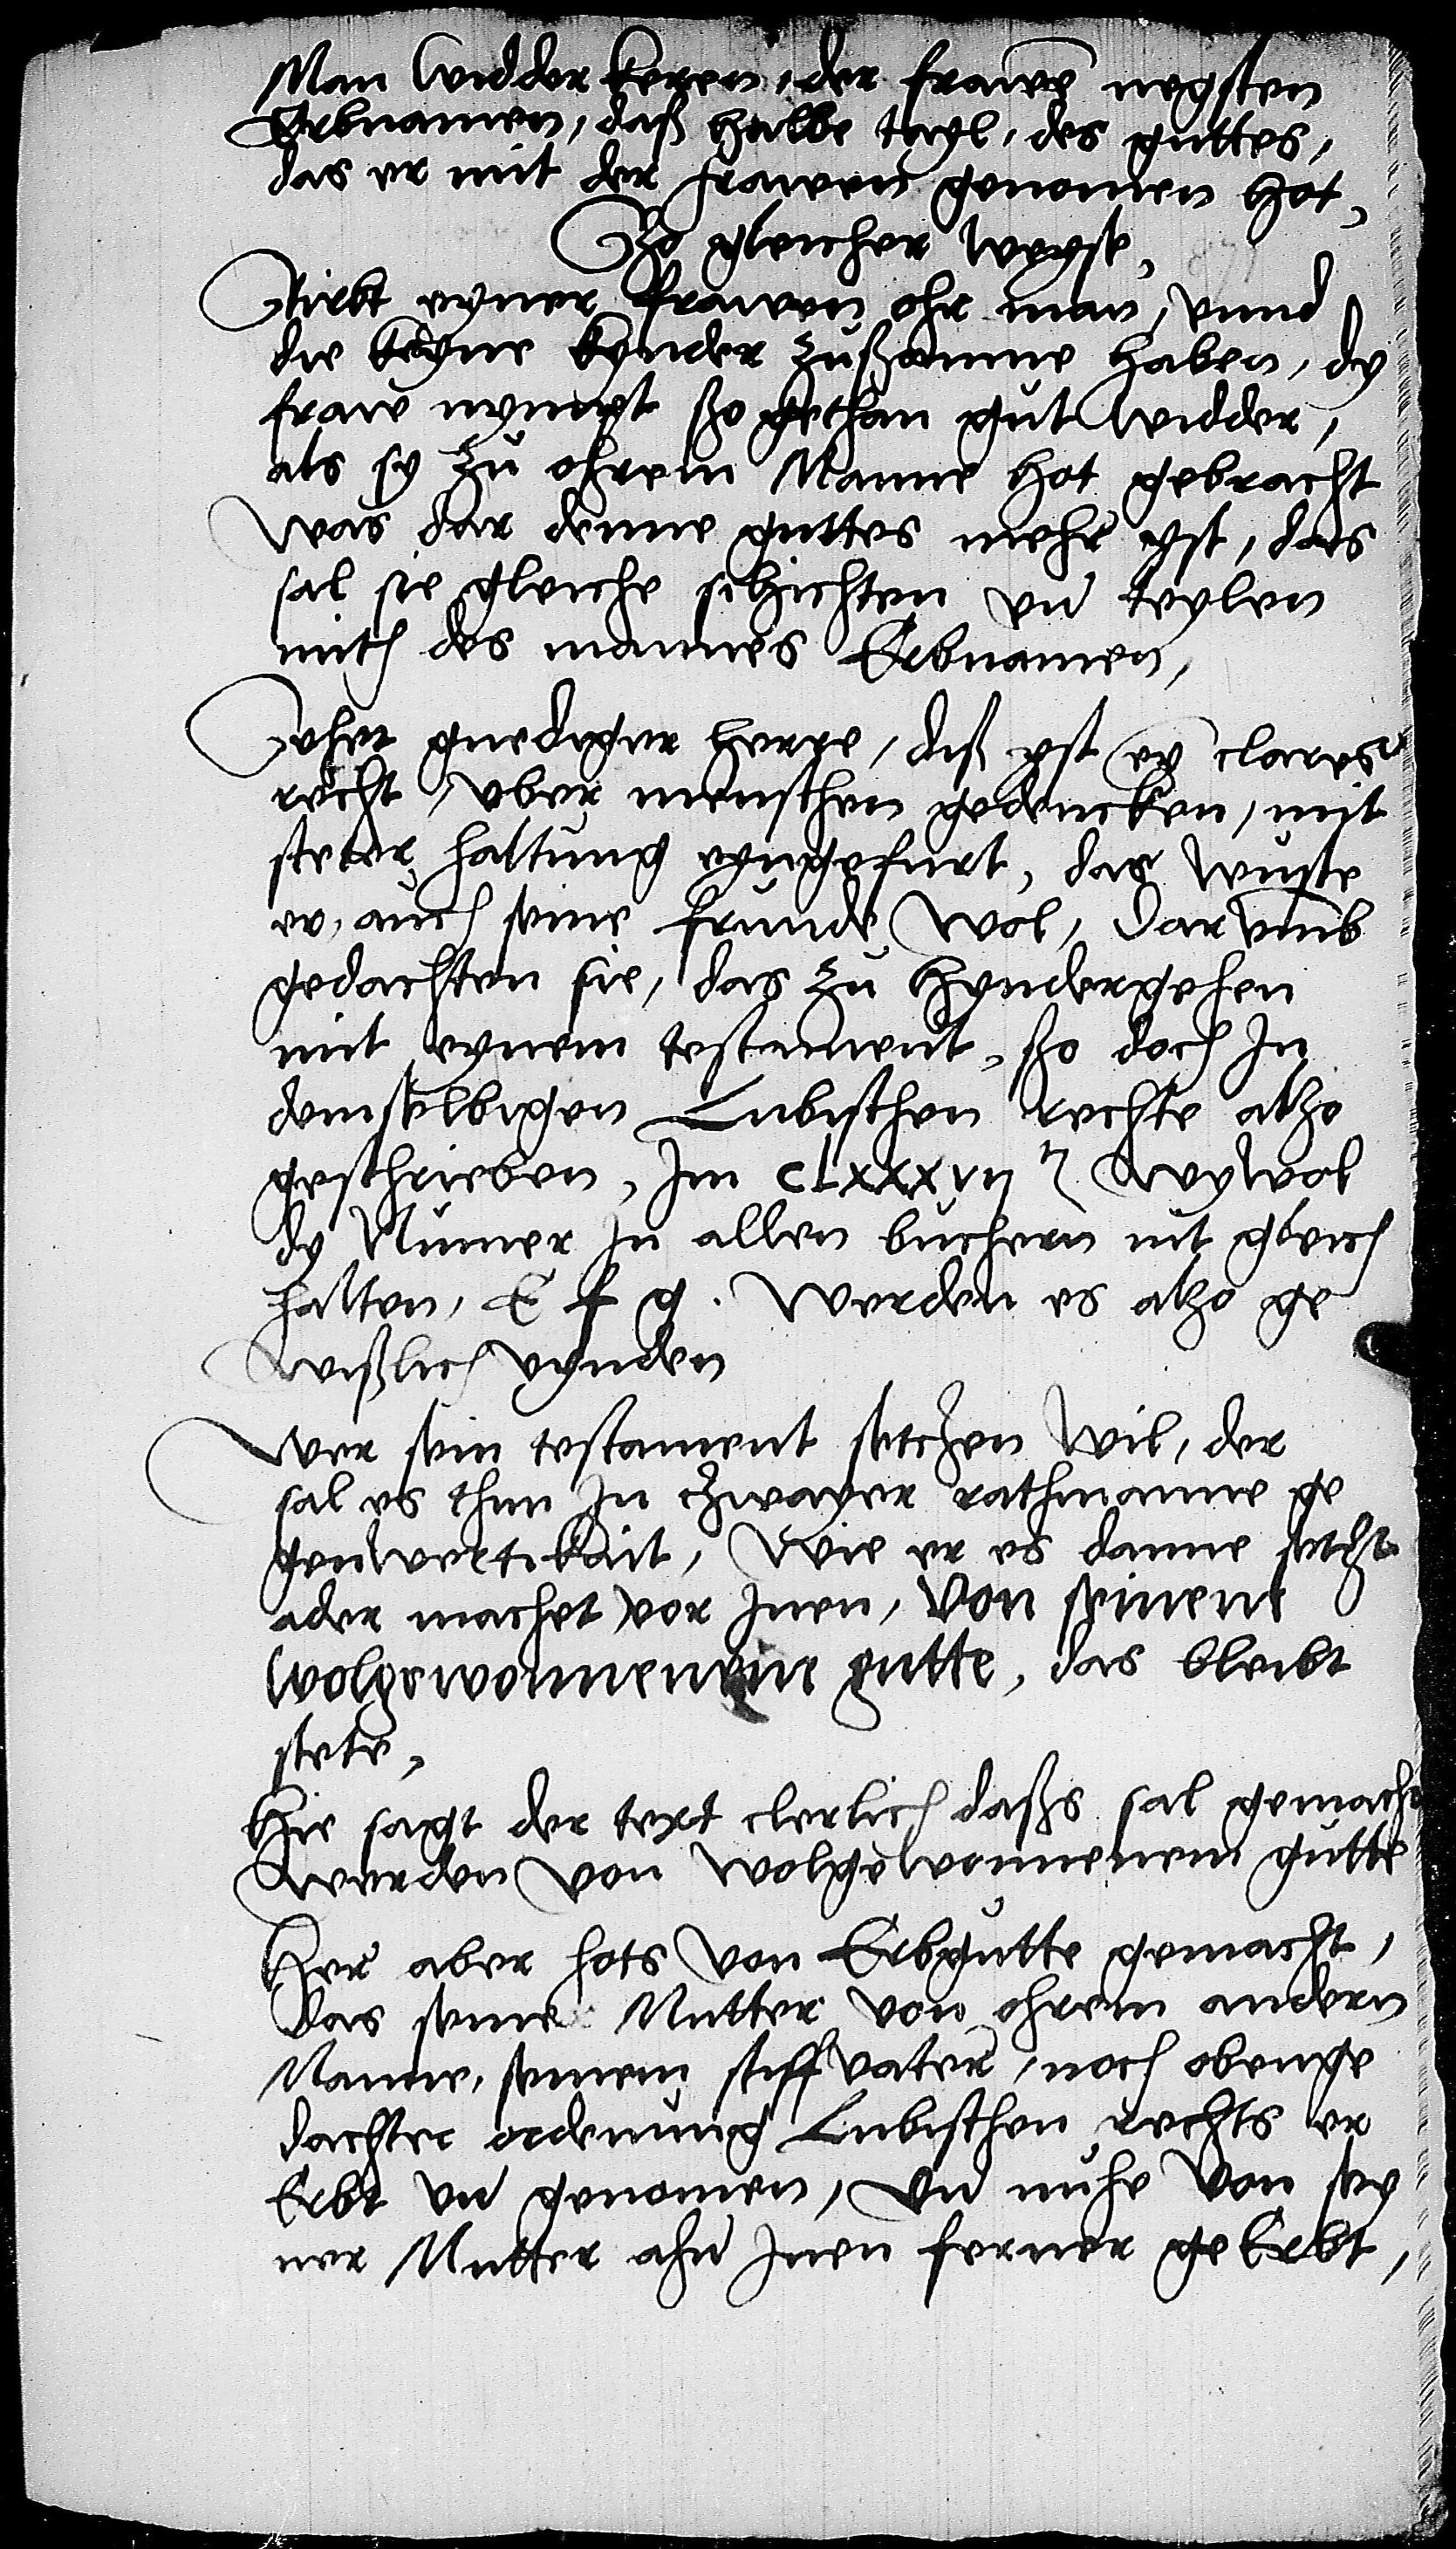 Man widder keren, der frawē negsten
Erbnamen, daß halbe tayl, des guttes,
das er mit der frawen genomen hot,
Zo gleicher weyße,
Stirbt eyner frawen ohr man, vnnd
die keyne kynder zußamne haben, dy
fraw nympt ßo gethan gut widder,
als sy zu ohrem Manne hot gebracht
was dar denne guttes mehr yst, das
sal sie gleiche schichten vn̄ teylen
mith des mannes Erbnamen,
Sehet gnediger herre, diß yst ey clares
recht, vber menschen gedencken, mit
steter haltung eyngefurt, das wuste
er, auch seine frunde wol, Darvmb
gedachten sie, das zu hyndergehen
mit eynem testament, ßo doch In
demselbigen Lubischen rechte also
geschrieben, Im clxxxvij wywol
dy Numer In allen buchern nit gleich
halten, E f g. werden es also ge
wißlich vynden
Wer sein testament setczen wil, der
sal es thun In czwayer rathmanne ge
genwertikait, Wie er es danne setzt
ader machet vor Inen, Von seinene
wolgewonnenem gutte, das bleibt
stete,
Hie sagt der text clerlich daßs sal gemacht
werden von wolgewonnenem gutte
Her aber hots von Erbgutte gemacht,
Das seine Mutter von ohrem andern
Manne, seinem stiffvater, noch obenge
dachter ordenung Lubischen rechts er
Erbt vn̄ genomen, Vn̄ nuhe von sey
ner Mutter ahn Inen ferner geErbt,